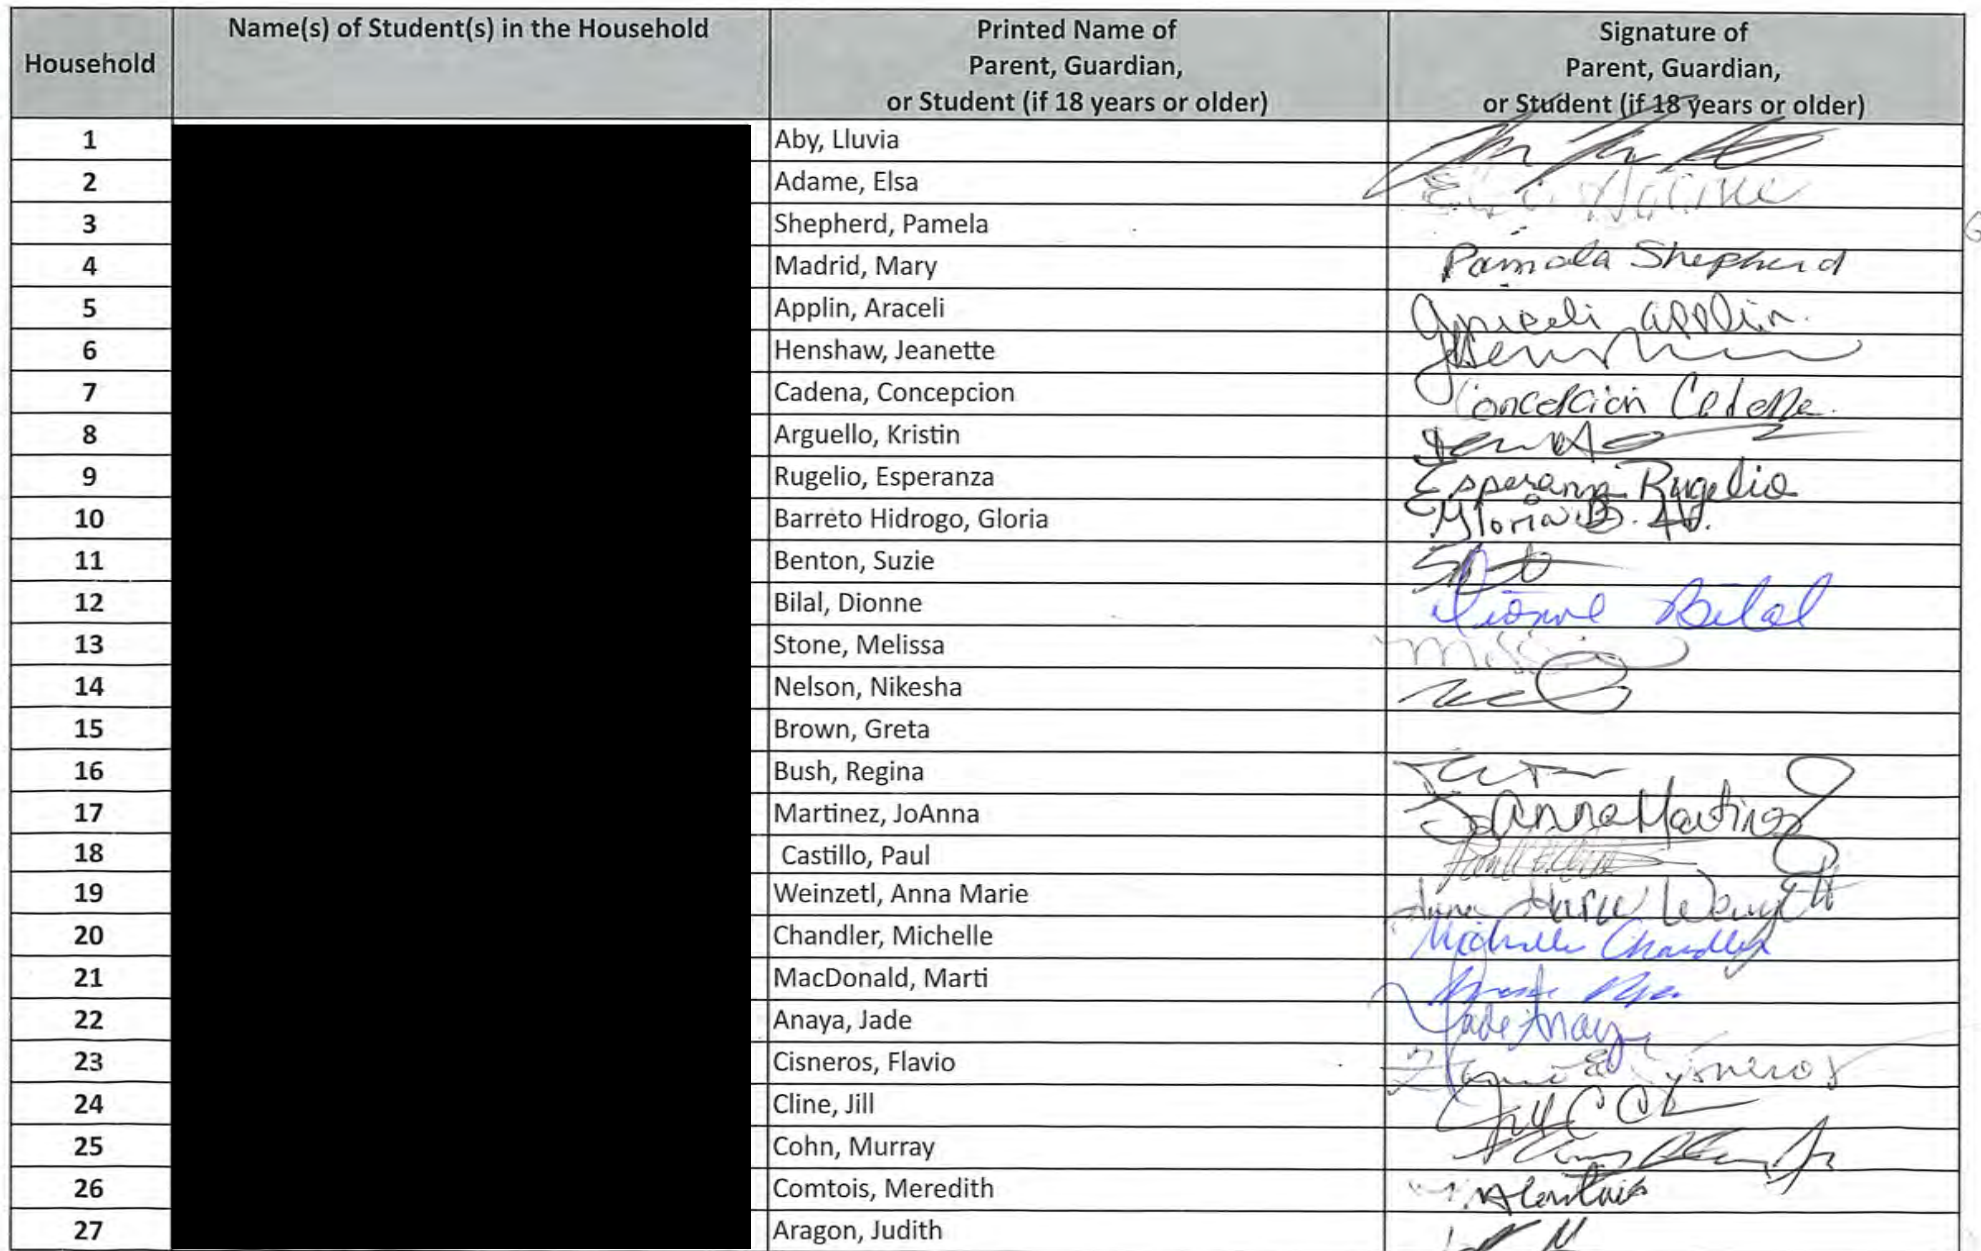 Household
Name(s) of Student(s) in the Household
Printed Name of
Parent, Guardian,
or Student (if 18 years or older)
Signature of
Parent, Guardian,
or Student (if 18 years or older)
1 Aby, Lluvia
2 Adame, Elsa
3 Shepherd, Pamela
4 Madrid, Mary Pamela Shepherd
5 Applin, Araceli Araceli Applin.
6 Henshaw, Jeanette
7 Cadena, Concepcion Concepcion Cadena
8 Arguello, Kristin
9 Rugelio, Esperanza Esperanza Rugelio
10 Barreto Hidrogo, Gloria Gloria B. H.
11 Benton, Suzie
12 Bilal, Dionne Dionne Bilal
13 Stone, Melissa
14 Nelson, Nikesha
15 Brown, Greta
16 Bush, Regina
17 Martinez, JoAnna JoAnna Martinez
18 Castillo, Paul
19 Weinzetl, Anna Marie Anna Marie
20 Chandler, Michelle Michelle Chandler
21 MacDonald, Marti
22 Anaya, Jade Jade Anaya
23 Cisneros, Flavio Cisneros
24 Cline, Jill Jill C
25 Cohn, Murray
26 Comtois, Meredith
27 Aragon, Judith